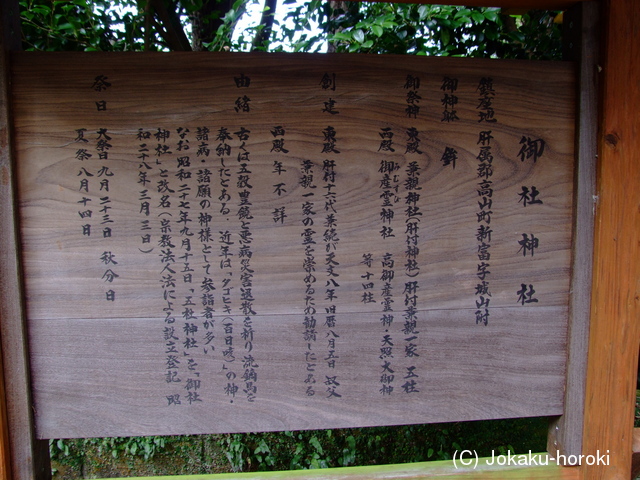 御社神社
鎮座地 肝属郡高山町新富字城山附
御神躰 鉾
御祭神 東殿 兼親神社(肝付神社)肝付兼親一家 五柱
西殿 御産霊神社 高御産霊神・天照大御神
みむすび
等十四柱
創建 東殿 肝付十六代兼続が天文八年旧暦八月五日 叔父
兼親一家の霊を崇めるため勧請したとある
西殿 年不詳
由緒 古くは五穀豊饒と悪病災害退散を祈り流鏑馬を
奉納したとある。近年は「クイヒキ(百日咳)」の神・
諸病・諸願の神様として参詣者が多い
なお昭和二十七年九月十五日、「五社神社」を「御社
神社」と改名(宗教法人法による設立登記 昭
和二十八年三月三日)
祭日 大祭日 九月二十三日 秋分日
夏祭 八月十四日
(C) Jokaku-horoki